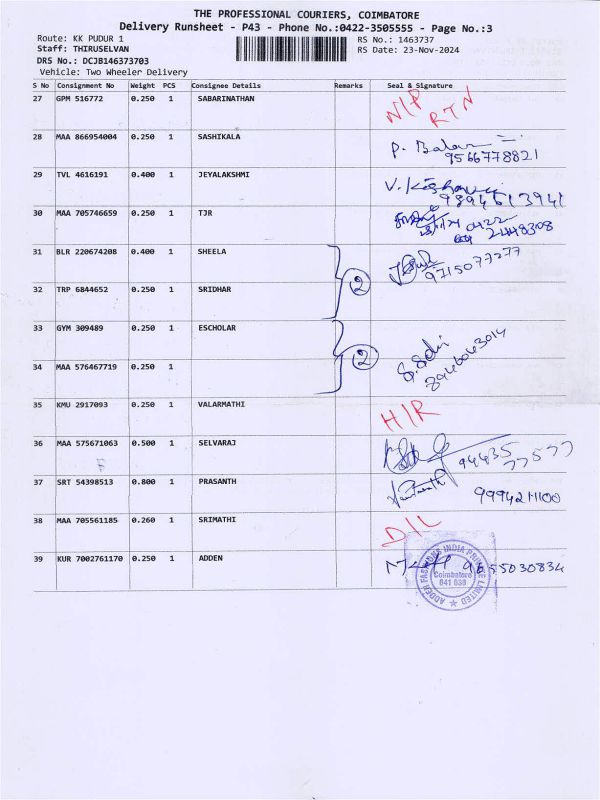 THE PROFESSIONAL COURIERS, COIMBATORE
Delivery Runsheet - P43 - Phone No.:0422-3505555 - Page No.:3
Route: KK PUDUR 1 RS No.: 1463737
Staff: THIRUSELVAN RS Date: 23-Nov-2024
DRS No.: DCJB146373703
Vehicle: Two Wheeler Delivery
S No Consignment No Weight PCS Consignee Details Remarks Seal & Signature
27 GPM 516772 0.250 1 SABARINATHAN N/P RTN
28 MAA 866954004 0.250 1 SASHIKALA P. Balan
9566778821
29 TVL 4616191 0.400 1 JEYALAKSHMI V.
9894613941
30 MAA 705746659 0.250 1 TJR 0422
2448308
31 BLR 220674208 0.400 1 SHEELA
9715077277
32 TRP 6844652 0.250 1 SRIDHAR
2
33 GYM 309489 0.250 1 ESCHOLAR
34 MAA 576467719 0.250 1
2
8946043014
35 KMU 2917093 0.250 1 VALARMATHI H/R
36 MAA 575671063 0.500 1 SELVARAJ 94435
77577
37 SRT 54398513 0.800 1 PRASANTH 9994211100
38 MAA 705561185 0.260 1 SRIMATHI D/L
39 KUR 7002761170 0.250 1 ADDEN 9655030834
ADDEN FASHIONS INDIA PRIVATE LIMITED
Coimbatore
641 038